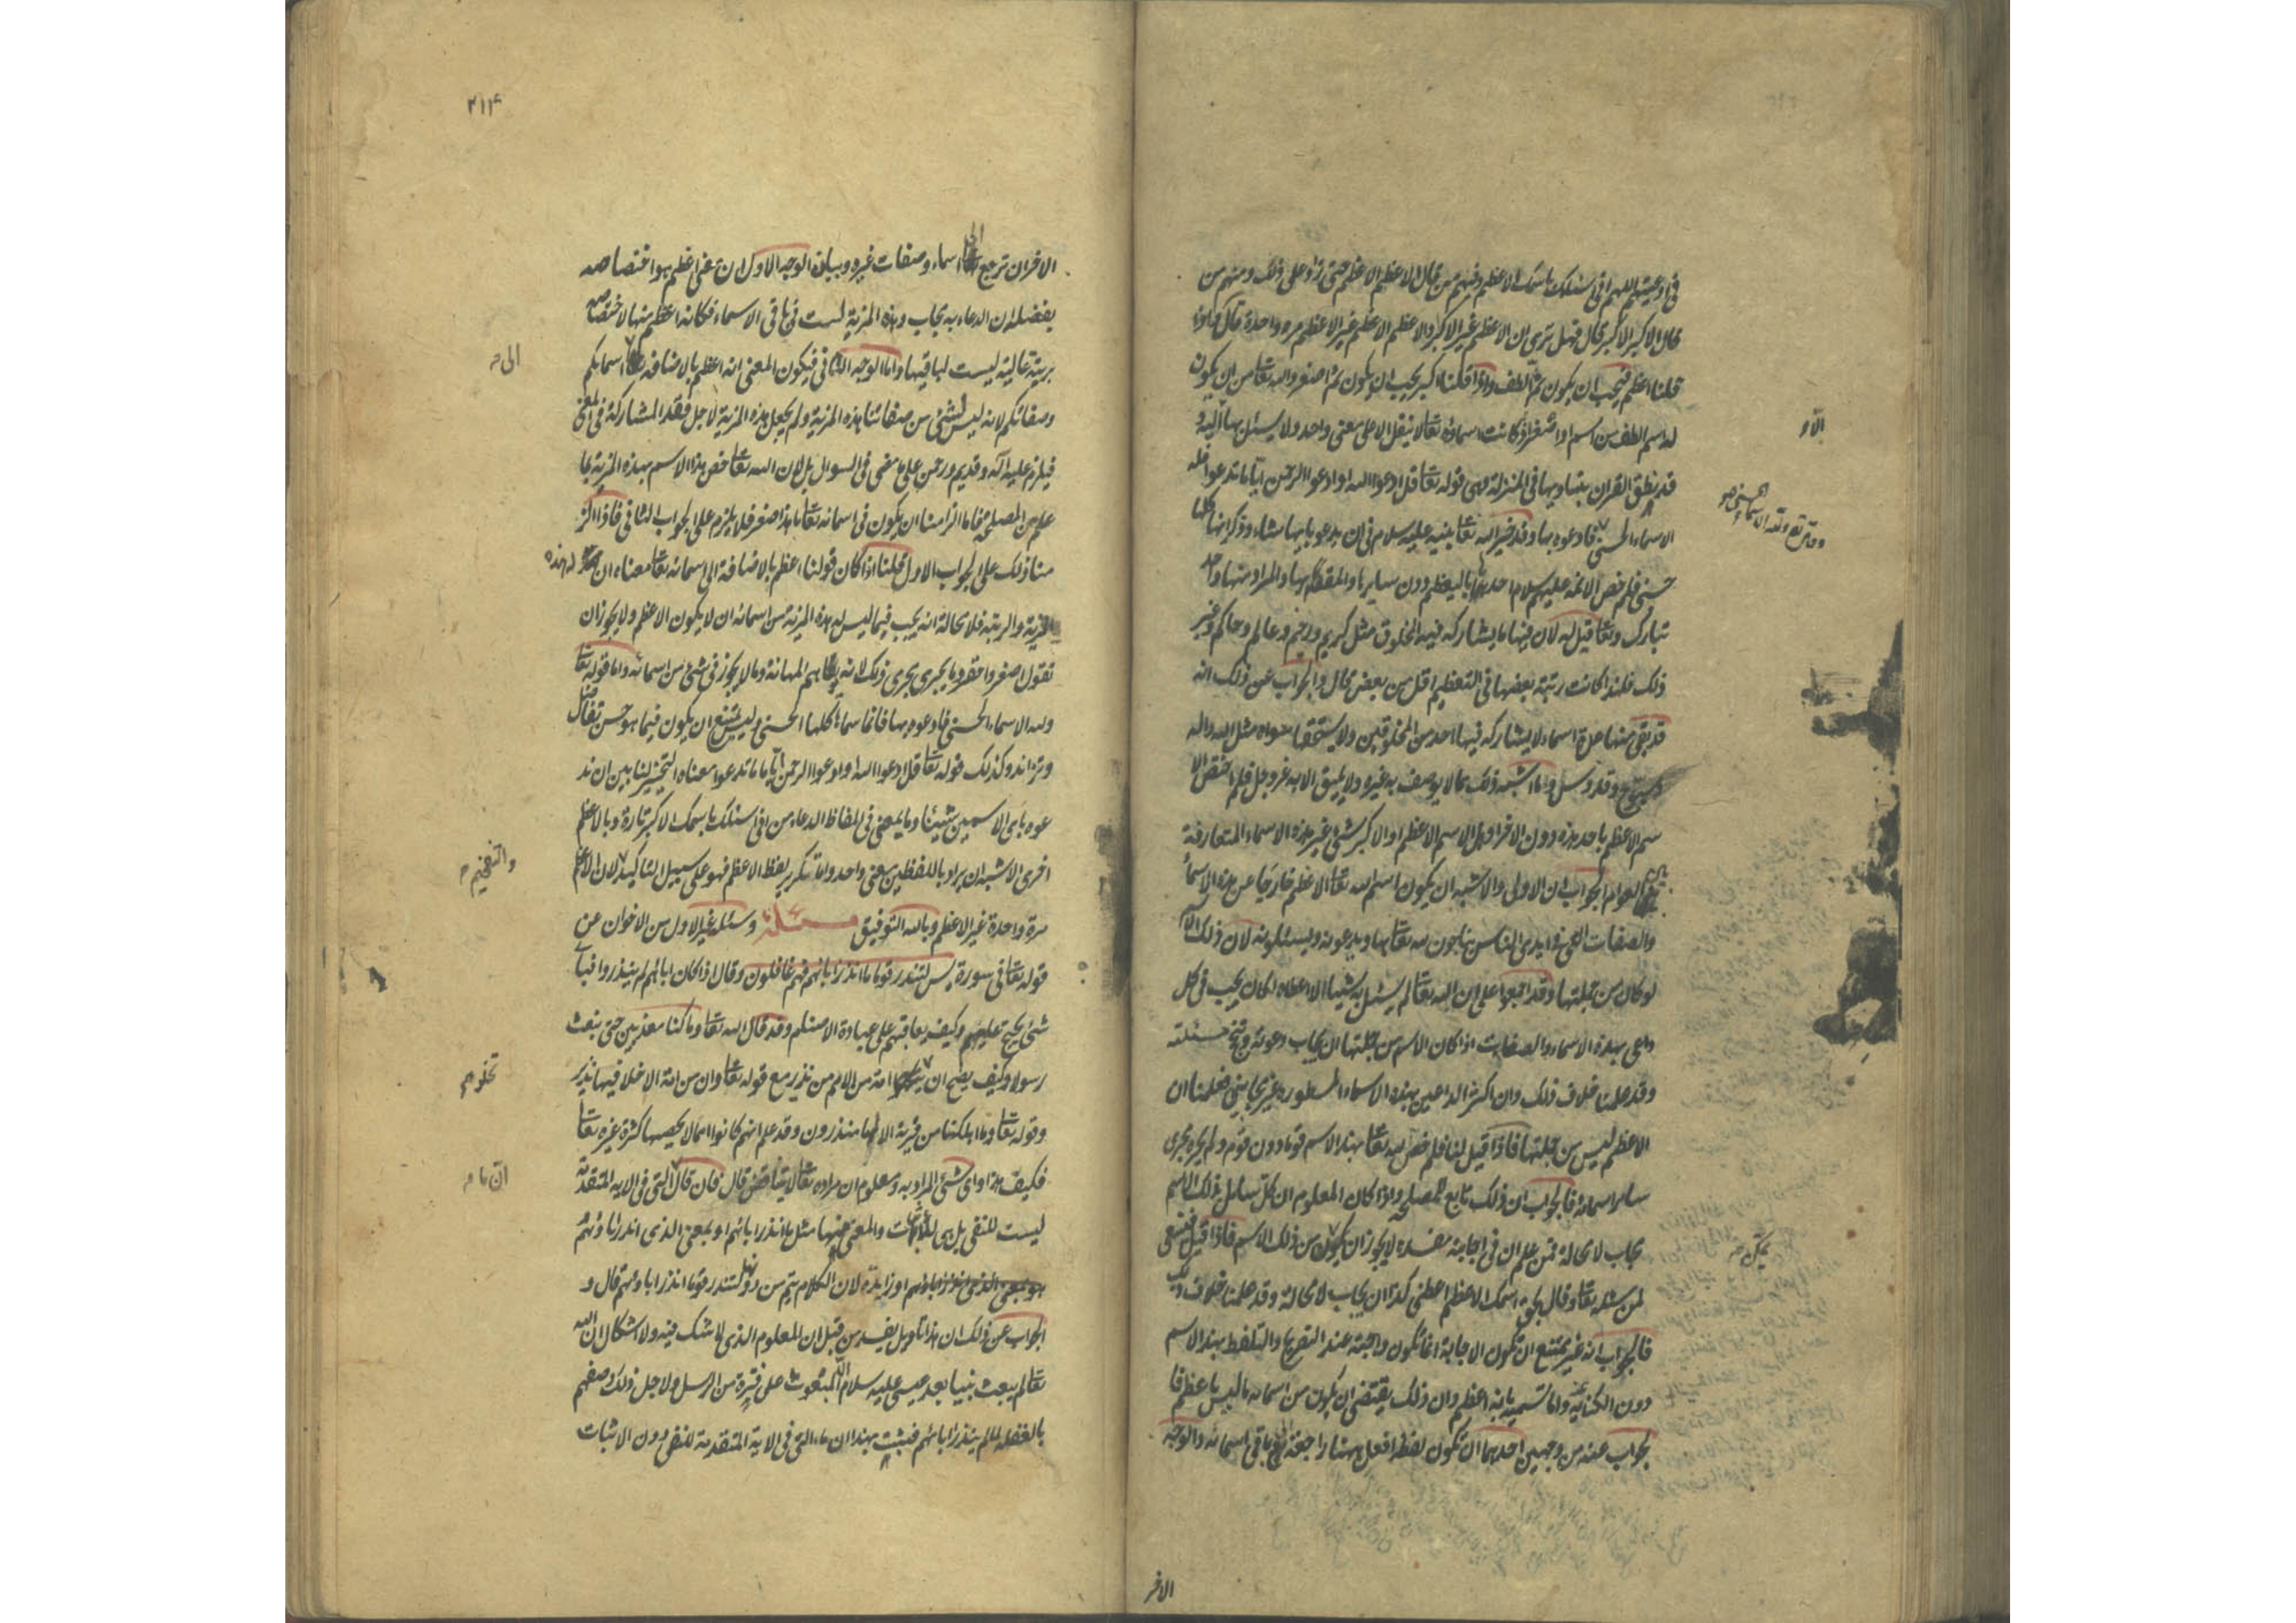 في ادعيتهم اللهم اني اسئلك باسمك الاعظم وفيهم من قال الاعظم الاعظم حتى زاد على ذلك ومنهم من
قال الاكبر الاكبر قال فهل ترى ان الاعظم غير الاكبر والاعظم الاعظم غير الاعظم مرة واحدة قال واذا
قلنا اعظم فيجب ان يكون ثم الطف واذا قلنا اكبر يجب ان يكون ثم اصغر والله تعا من ان يكون
له اسم الطف من اسم او اصغر اذ كانت اسماؤه تعا لا ينقل الا على معنى واحد ولا يسئل بها الا
قد نطق القران بتساويها في المنزلة وهي قوله تعا قل ادعوا الله او ادعوا الرحمن ايّا ما تدعوا فله
الاسماء الحسنى فادعوه بها وقد خير الله تعا نبيه عليه سلام في ان يدعو بايها شاء وذكر انها كلها
حسنى فلم خص الائمة عليهم سلام احدها بالتعظيم دون سايرها والمقصد بها والمراد منها واحد
تبارك وتعا قيل له لان فيها ما يشاركه فيه المخلوق مثل كريم ورحيم وعالم وحاكم وغير
ذلك فلهذا كانت رتبة بعضها في التعظيم اقل من بعض قال والجواب عن ذلك انه
قد بقى منها عدة اسماء لا يشاركه فيها احد من المخلوقين ولا يستحقها سواه مثل الله واله
وسبوح وقدوس وما اشبه ذلك مما لا يوصف به غيره ولا يليق الا به عز وجل فلم اختص الا
سم الاعظم باحد هذه دون الاخر او هل الاسم الاعظم او الاكبر شئ غير هذه الاسماء المتعارفة
بين العوام الجواب ان الاولى والاشبه ان يكون اسم الله تعا الاعظم خارجا عن هذه الاسماء
والصفات التى في ايدى الناس يناجون الله تعا بها ويدعونه ويسئلونه لان ذلك الاسم
لو كان من جملتها وقد اجمعوا على ان الله تعا لم يسئل به شيئا الا اعطاه لكان يجب في كل
داعى بهذه الاسماء والصفات اذا كان الاسم من جملتها ان يجاب دعوته وتنجح مسئلته
وقد علمنا خلاف ذلك وان اكثر الداعين بهذه الاسماء المسطورة غير مجابين فعلمنا ان
الاعظم ليس من جملتها فاذا قيل لنا فلم خص الله تعا بهذا الاسم قوما دون قوم ولم يجره مجرى
ساير اسمائه فالجواب ان ذلك تابع للمصلحة واذا كان المعلوم ان كل سايل بذلك الاسم
يجاب لا محالة فمن علم ان في اجابته مفسدة لا يجوز ان يكون من ذلك الاسم فاذا قيل فينبغى
لمن سئله تعا وقال بحق اسمك الاعظم اعطنى كذا ان يجاب لا محالة وقد علمنا خلاف ذلك
فالجواب انه غير ممتنع ان تكون الاجابة انما تكون واجبة عند التصريح والتلفظ بهذا الاسم
دون الكناية واما تسميته بانه اعظم وان ذلك يقتضى ان يكون من اسمائه ما ليس باعظم فا
لجواب عنه من وجهين احدهما ان تكون لفظة افعل ههنا راجعة الى باقى اسمائه والوجه
الا و
يمكن
الاخر
۲۱۴
الاخر ان ترجع الى اسماء وصفات غيره وبيان الوجه الاول ان معنى اعظم هو اختصاصه
بفضيلة ان الدعاء به يجاب وهذه المزية ليست في باقى الاسماء فكانه اعظم منها لاختصاصه
برتبة عالية ليست لباقيها واما الوجه الثانى فيكون المعنى انه اعظم بالاضافة اسمايكم
وصفاتكم لانه ليس لشئ من صفاتنا هذه المزية ولم يجعل هذه المزية لاجل فقد المشاركة في المعنى
فيلزم عليه اله وقديم ورحمن على ما مضى في السوال بل لان الله تعا خص هذا الاسم بهذه المزية لما
علم من المصلحة فاما الزامنا ان يكون في اسمائه تعا ما هذا اصغر فلا يلزم على الجواب الثانى فاذا الزمنا
منا ذلك على الجواب الاول قلنا اذا كان قولنا اعظم بالاضافة الى اسمائه تعا معناه ان له هذه
المزية والرتبة فلا محالة انه يجب فيما ليس له هذه المزية من اسمائه ان لا يكون الاعظم ولا يجوز ان
نقول اصغر واحقر وما يجرى مجرى ذلك لانه يوهم المهانة وما لا يجوز في شئ من اسمائه واما قوله تعا
ولله الاسماء الحسنى فادعوه بها فانما سماها كلها الحسنى وليس يمتنع ان يكون فيما هو حسن تفاضل
وتزايد وكذلك قوله تعا قل ادعوا الله او ادعوا الرحمن ايّا ما تدعوا معناه التخيير لنا بين ان ند
عوه باى الاسمين شئنا وما يمضى في الفاظ الدعاء من انى اسئلك باسمك الاكبر تارة وبالاعظم
اخرى الاشبه ان يراد باللفظين معنى واحد واما تكرير لفظ الاعظم فهو على سبيل التاكيد لان الاعظم
مرة واحدة غير الاعظم وبالله التوفيق مسئلة وسئله غير الاول من الاخوان عن
قوله تعا في سورة يس لتنذر قوما ما انذر اباؤهم فهم غافلون وقال اذا كان اباؤهم لم ينذروا فباى
شئ يحتج عليهم وكيف يعاقبهم على عبادة الاصنام وقد قال الله تعا وما كنا معذبين حتى نبعث
رسولا وكيف يصح ان امة من الامم من نذير مع قوله تعا وان من امة الا خلا فيها نذير
وقوله تعا وما اهلكنا من قرية الا لها منذرون وقد علم انهم كانوا امما لا يحصيها كثرة غيره تعا
فكيف هذا واى شئ المراد به ومعلوم ان مراده تعا لا يتناقض قال فان قال التى في الاية المتقدمة
ليست للنفى بل هى للاثبات والمعنى فيها مثل ما انذر اباؤهم او بمعنى الذى انذر اباؤهم
او زايدة لان الكلام يتم من دونها لتنذر قوما انذر اباؤهم قال و
الجواب عن ذلك ان هذا تاويل يفسد من قبل ان المعلوم الذى لا شك فيه ولا اشكال ان الله
تعا لم يبعث نبيا بعد عيسى عليه سلام الا المبعوث على فترة من الرسل ولاجل ذلك وصفهم
بالغفلة لما لم ينذر اباؤهم فيثبت بهذا ان ما التى في الاية المتقدمة للنفى دون الاثبات
الى
والتفخيم
تخلو
ان ما